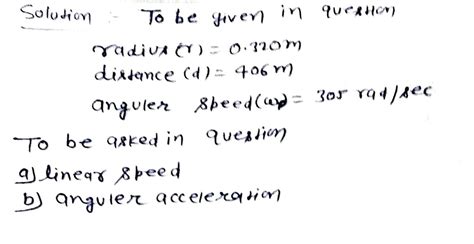 Solution :- To be given in question
radius (r) = 0.320m
distance (d) = 406 m
anguler speed (ω) = 305 rad/sec
To be asked in question
a) linear speed
b) anguler acceleration